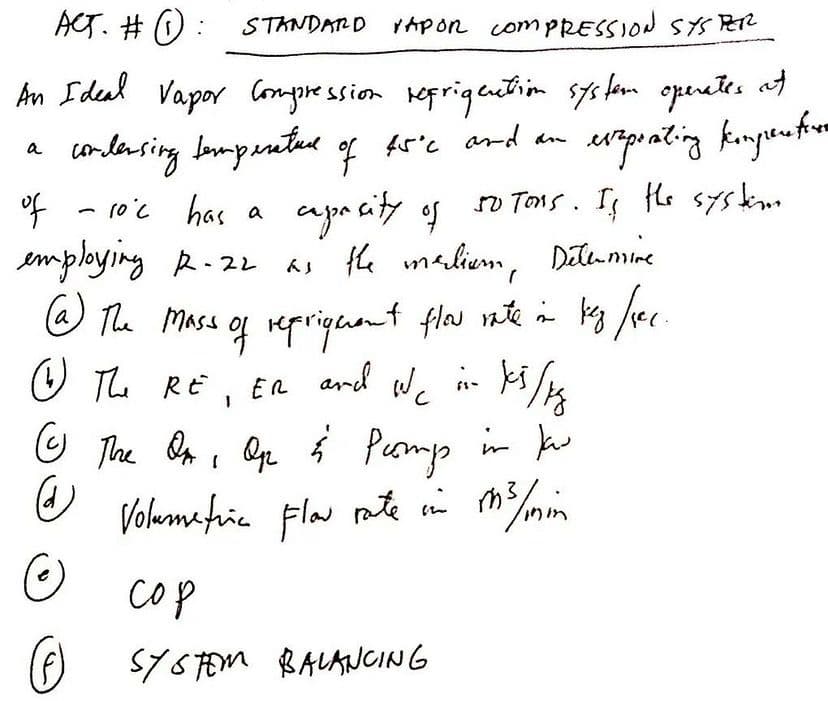 ACT. # ① : STANDARD VAPOR COMPRESSION SYSTEM
An Ideal Vapor Compression refrigeration system operates at
a condensing temperature of 45°C and an evaporating temperature
of -10°C has a capacity of 50 Tons. If the system
employing R-22 as the medium, Determine
ⓐ The Mass of refrigerant flow rate in kg/sec.
ⓑ The RE, ER and Wc in kJ/kg
ⓒ The QA, QR & Pcomp in kW
ⓓ Volumetric Flow rate in m³/min
ⓔ COP
ⓕ SYSTEM BALANCING